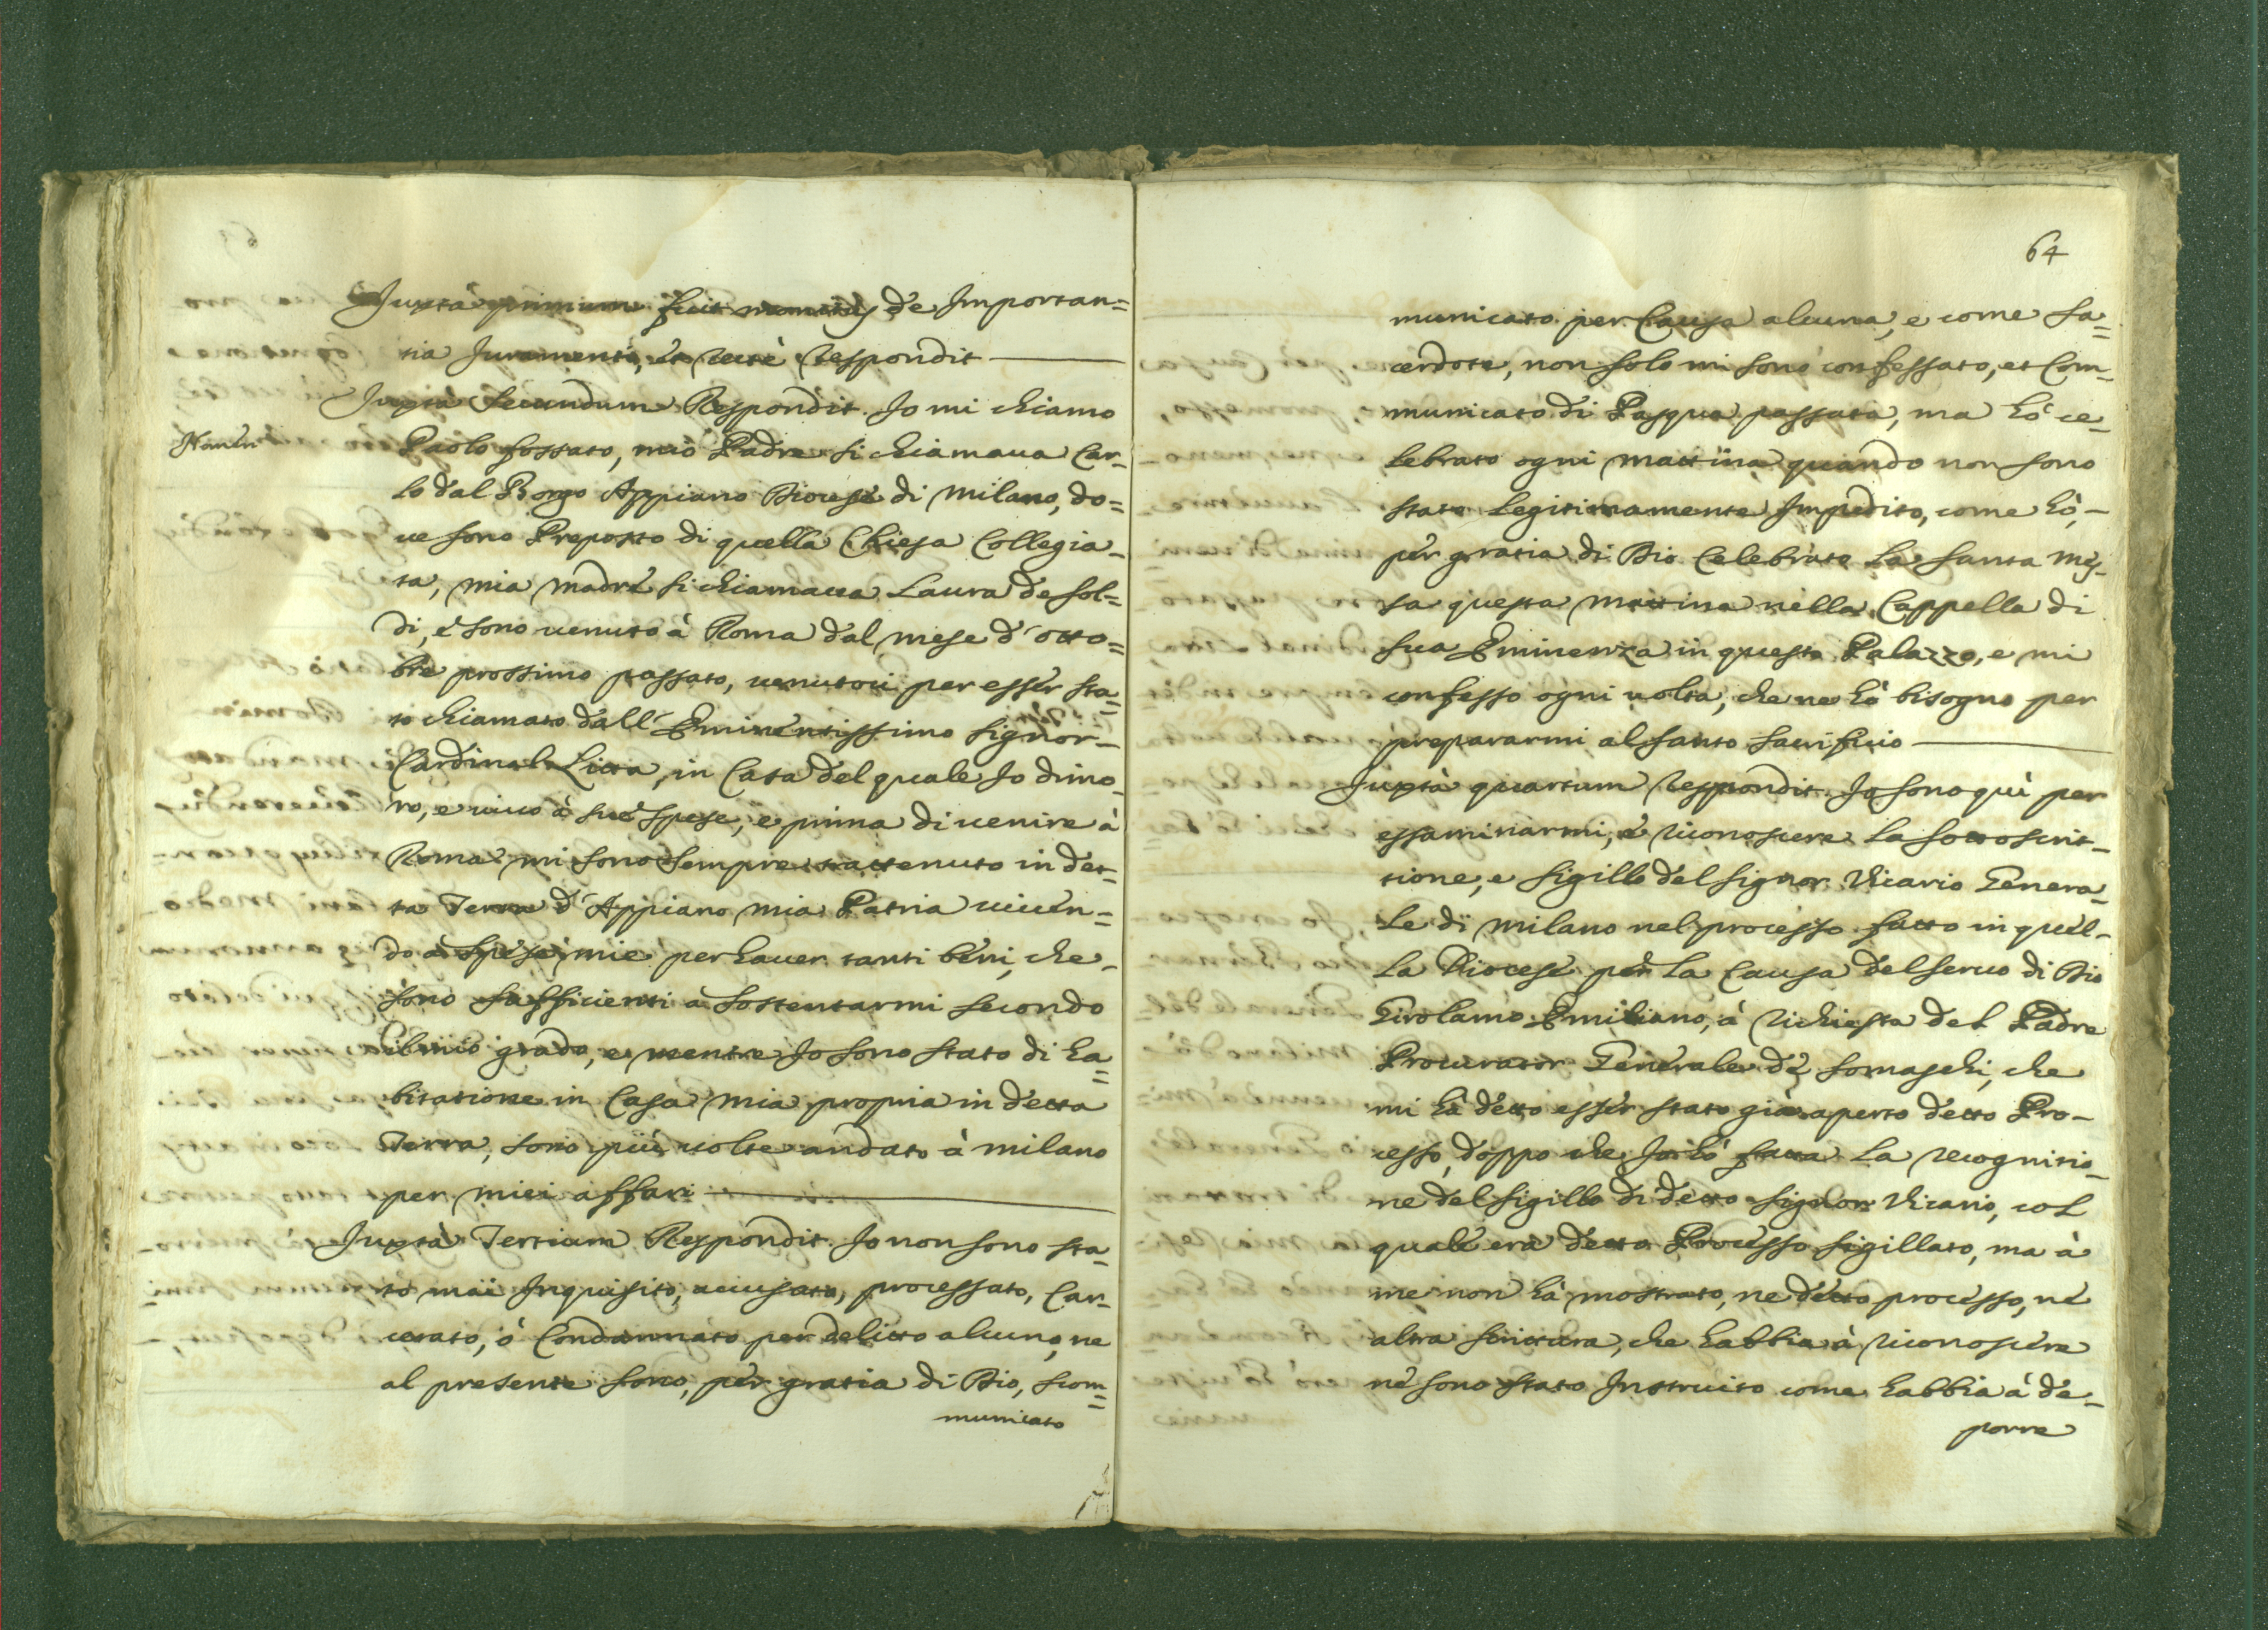 Juxta primum fuit monitus de Importan=
tia Juramenti, et recté respondit
Juxta Secundum Respondit. Io mi chiamo
Paolo fossato, mio Padre si chiamaua Car-
lo dal Borgo Appiano Diocese di Milano, do=
ue sono Preposto di quella Chiesa Collegia-
ta, mia Madre si chiamaua Laura de sol=
di, e sono uenuto à Roma dal mese d'otto=
bre prossimo passato, uenutoci per esser sta=
to chiamato dall'Eminentissimo Signor-
Cardinale Litta, in Casa del quale Io dimo-
ro, e uiuo à sue spese, e prima di uenire à
Roma mi sono sempre trattenuto in det-
ta Terra d'Appiano mia Patria uiuen=
do à spese mie per hauer tanti beni, che-
sono sufficienti à sostentarmi secondo
il mio grado, e mentre Io sono stato di ha=
bitatione in Casa mia propria in detta
Terra, sono più uolte andato à Milano
per miei affari
Juxtà Tertium Respondit. Io non sono sta-
to mai Inquisito, accusato, processato, Car-
cerato, ò Condannato per delitto alcuno, ne
al presente sono, per gratia di Dio, scom=
municato
64
municato per Causa alcuna, e come sa=
cerdote, non solo mi sono confessato, et Com-
municato di Pasqua passata, ma hò ce-
lebrato ogni mattina quando non sono
stato legitimamente Impedito, come hò,-
per gratia di Dio Celebrato la santa mes-
sa questa mattina nella Cappella di
sua Eminenza in questo Palazzo, e mi
confesso ogni uolta, che ne hò bisogno per
prepararmi al santo sacrificio
Juxtà quartum respondit. Io sono quì per
essaminarmi, e riconoscere la sottoscrit-
tione, e sigillo del Signor Vicario Genera-
le di Milano nel processo fatto in quel-
la Diocese per la Causa del seruo di Dio
Girolamo Emiliano, à richiesta del Padre
Procurator Generale de Somaschi, che
mi hà detto esser stato già aperto detto Pro-
cesso, doppo che Io hò fatta la recognitio-
ne del sigillo di detto Signor Vicario, col
quale era detto Processo sigillato, ma à
me non hà mostrato, ne detto processo, né
altra scrittura, che habbia à riconoscere
né sono stato Instruito come habbia à de-
porre